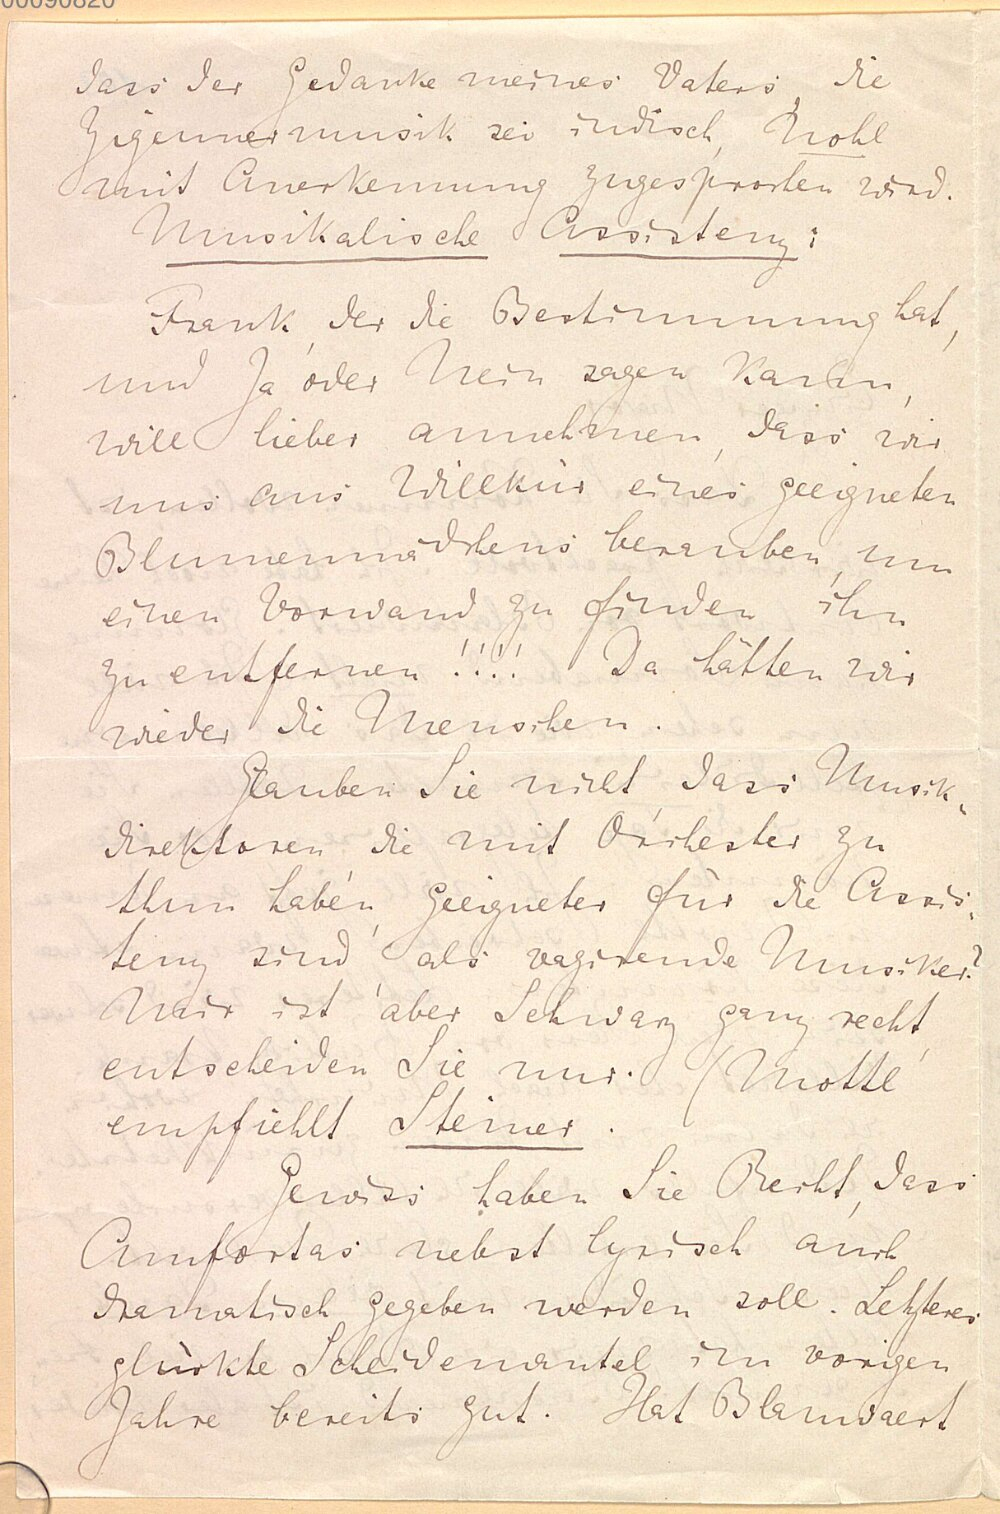 00090820
dass der Gedanke meines Vaters, die
Zigeunermusik sei indisch, Nohl
mit Anerkennung zugesprochen wird.
Musikalische Assistenz:
Frank, der die Bestimmung hat,
und Ja oder Nein sagen kann,
will lieber annehmen, dass wir
uns aus Willkür eines geeigneten
Blumenmädchens berauben, um
einen Vorwand zu finden ihn
zu entfernen!!!! Da hätten wir
wieder die Menschen.
Glauben Sie nicht, dass Musik-
direktoren die mit Orchester zu
thun haben, geeigneter für die Assis-
tenz sind als vagirende Musiker?
Mir ist aber Schwarz ganz recht,
entscheiden Sie nur. (Mottl
empfiehlt Steiner.
Gewiss haben Sie Recht, dass
Amfortas nebst lyrisch auch
dramatisch gegeben werden soll. Letzteres
glückte Scheidemantel im vorigen
Jahre bereits gut. Hat Blauwaert